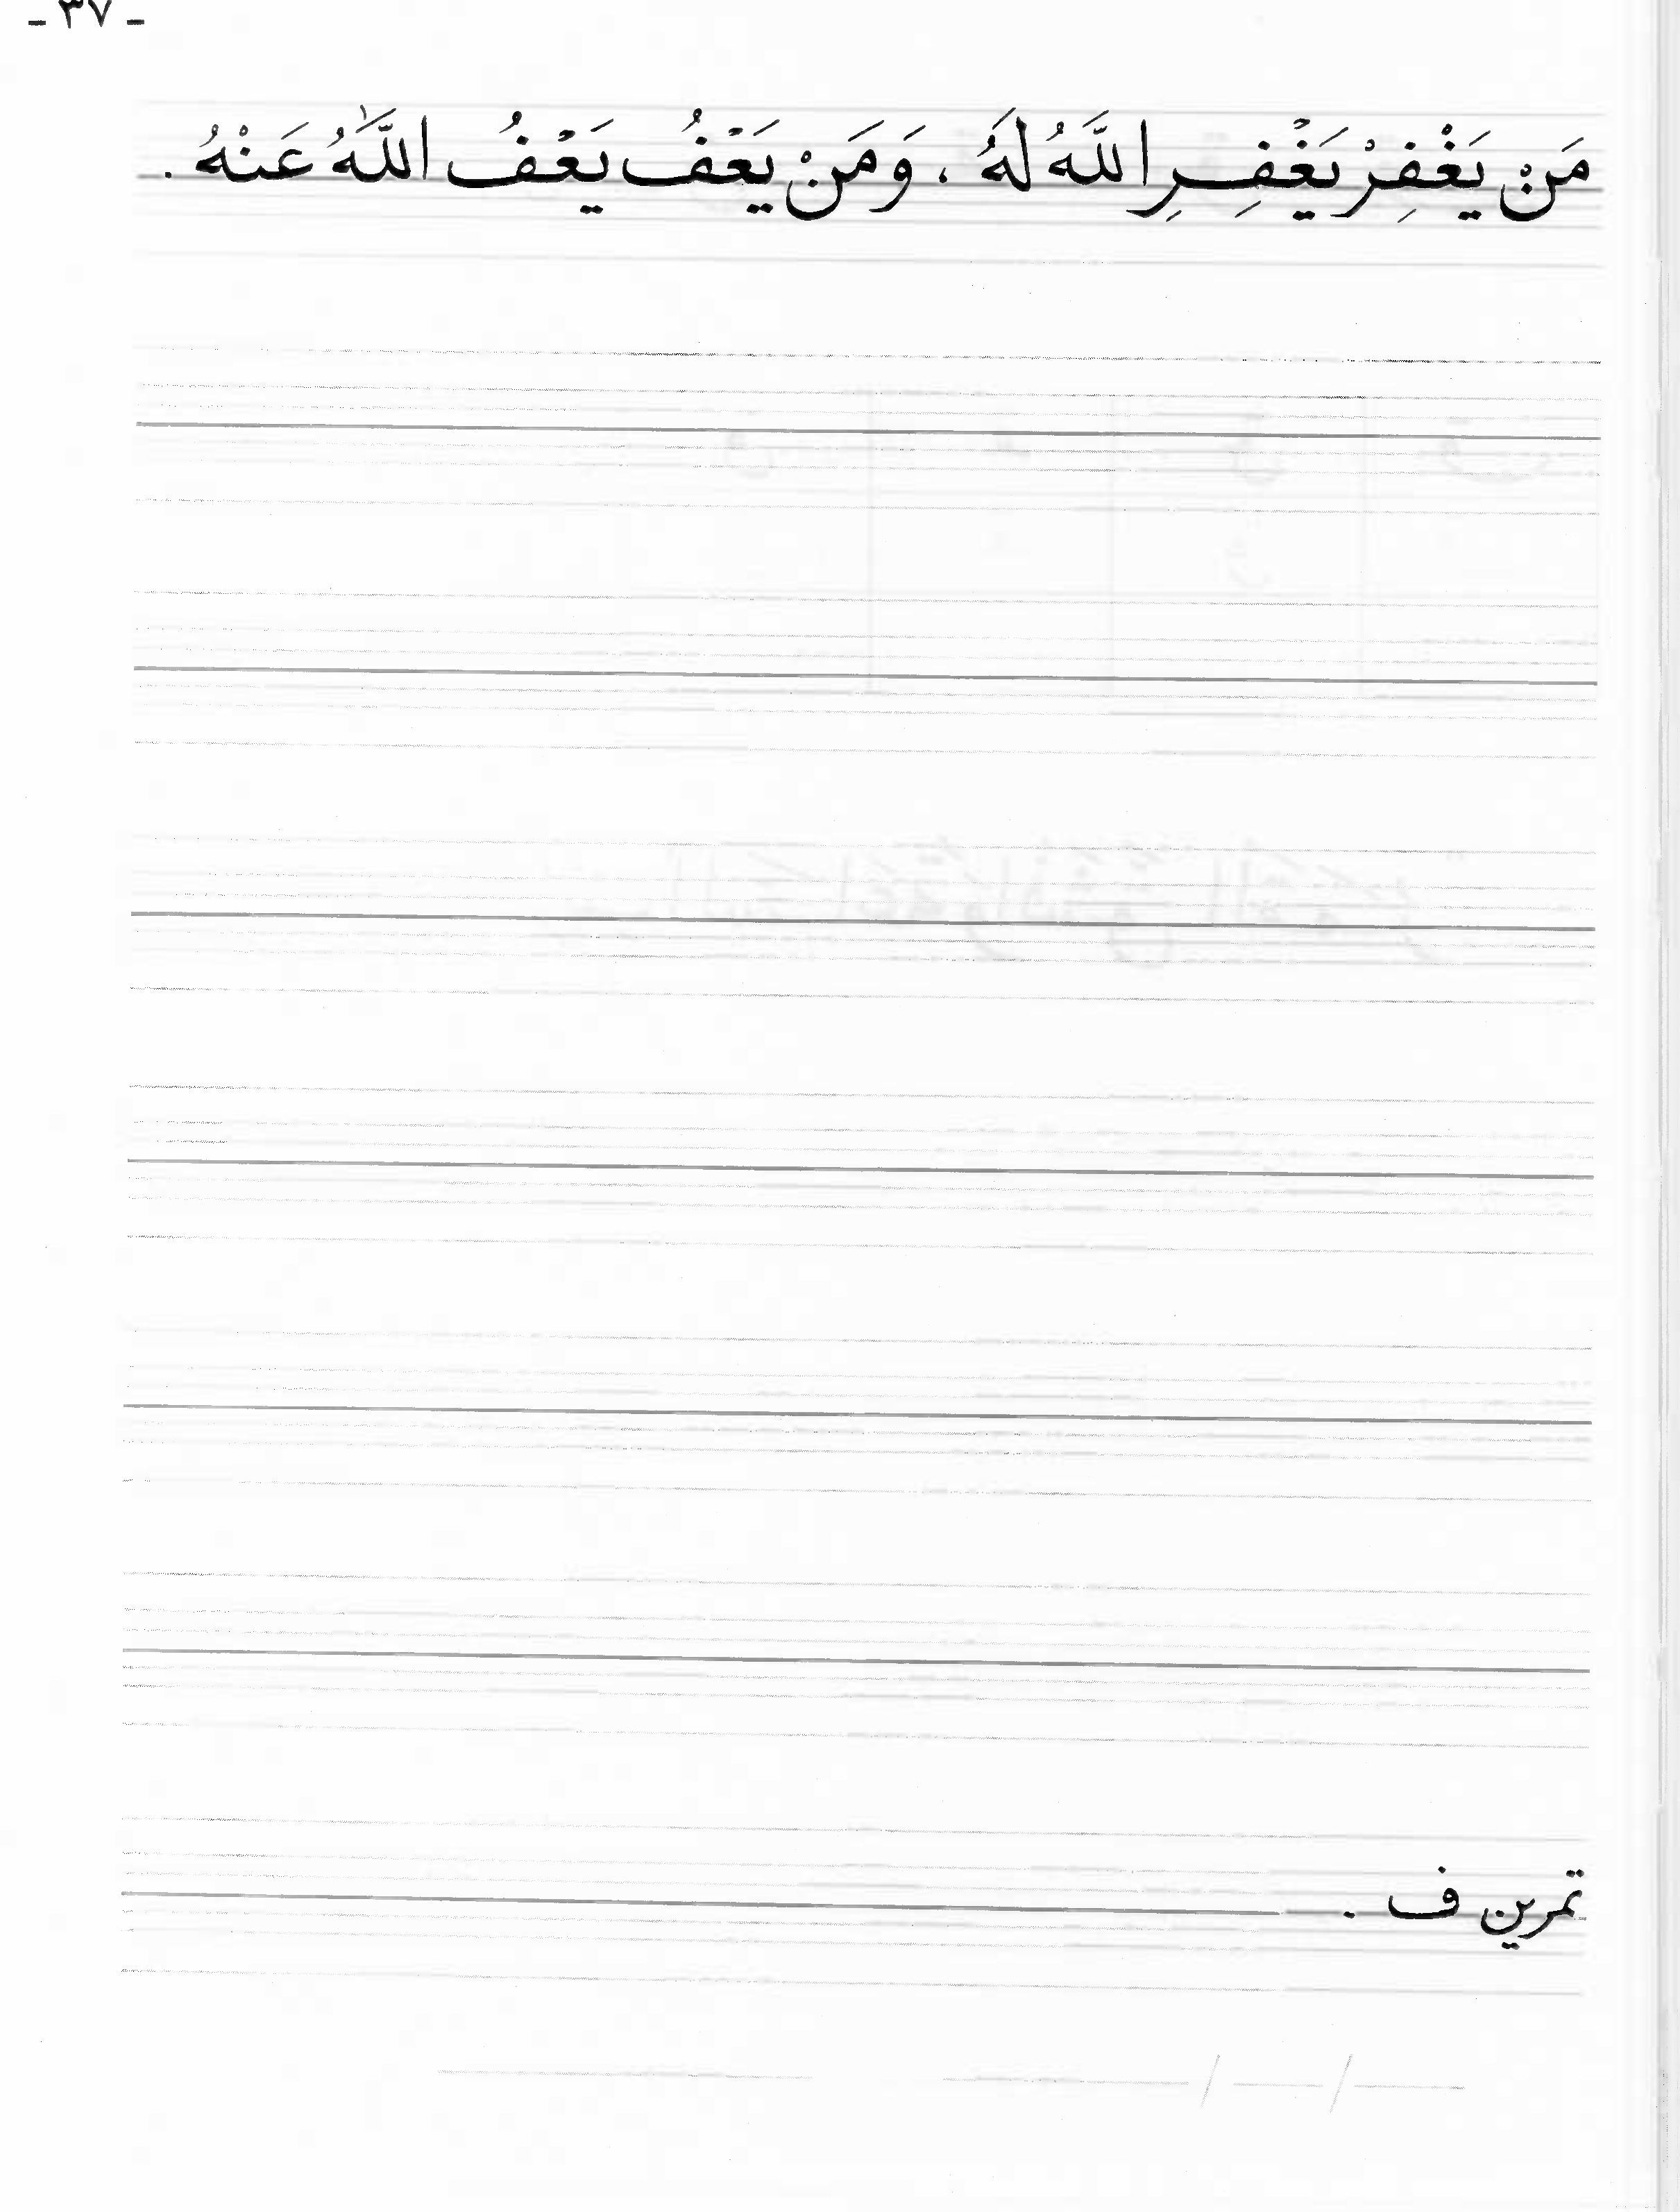 - ٣٧ -
مَنْ يَغْفِرْ يَغْفِرِ اللَّهُ لَهُ ، وَمَنْ يَعْفُ يَعْفُ اللَّهُ عَنْهُ .
تمرين ف .